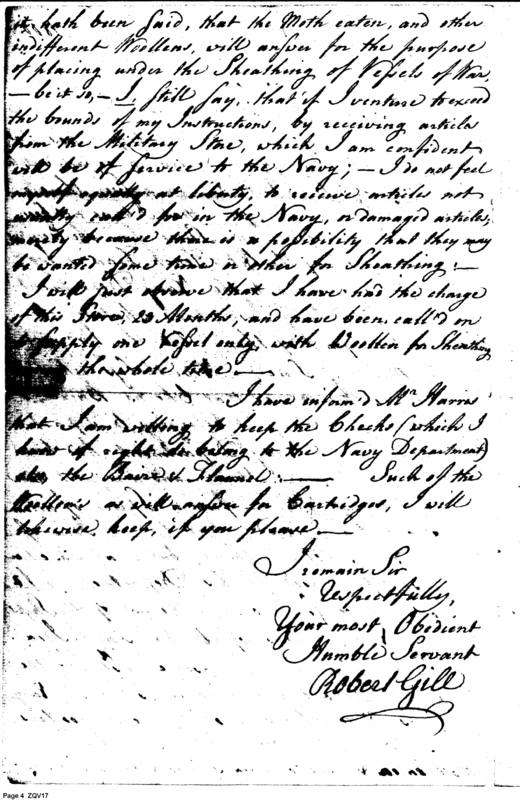 it hath been said, that the Moth eaten, and other
indifferent Woollens, will answer for the purpose
of placing under the Sheathing of Vessels of War,
— be it so, — I still say, that if I venture to exceed
the bounds of my Instructions, by receiving articles
from the Military Store, which I am confident
will be of service to the Navy; — I do not feel
myself equally at liberty, to receive articles not
call'd for in the Navy, or damaged articles,
merely because there is a possibility that they may
be wanted some time or other for Sheathing. —
I will just observe that I have had the charge
of this Store, 23 Months, and have been call'd on
to supply one Vessel only, with Woollen for Sheathing
the whole time —
I have inform'd Mr Harris
that I am willing to keep the Checks (which I
of right belong to the Navy Department)
also, the Baize & Flannel. — Such of the
Woollen's as will answer for Cartridges, I will
likewise keep, if you please —
I remain Sir
respectfully,
Your most Obedient
Humble Servant
Robert Gill
Page 4 ZQV17